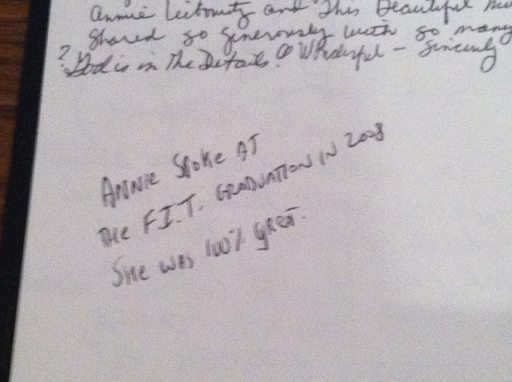 Annie Leibovitz and This Beautiful
Shared so generously with so many
? God is in The Details! Wonderful - Sincerely
ANNIE SPOKE AT
THE F.I.T. GRADUATION IN 2008
SHE WAS 100% GREAT.